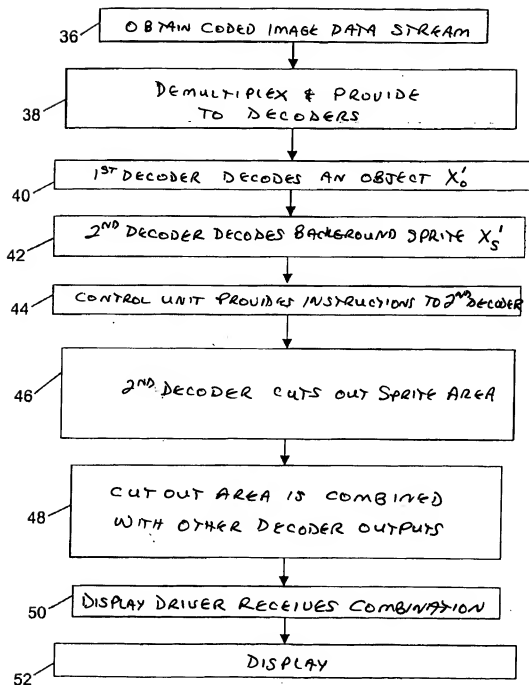 36
OBTAIN CODED IMAGE DATA STREAM
38
DEMULTIPLEX & PROVIDE
TO DECODERS
40
1ST DECODER DECODES AN OBJECT X'o
42
2ND DECODER DECODES BACKGROUND SPRITE X's
44
CONTROL UNIT PROVIDES INSTRUCTIONS TO 2ND DECODER
46
2ND DECODER CUTS OUT SPRITE AREA
48
CUT OUT AREA IS COMBINED
WITH OTHER DECODER OUTPUTS
50
DISPLAY DRIVER RECEIVES COMBINATION
52
DISPLAY